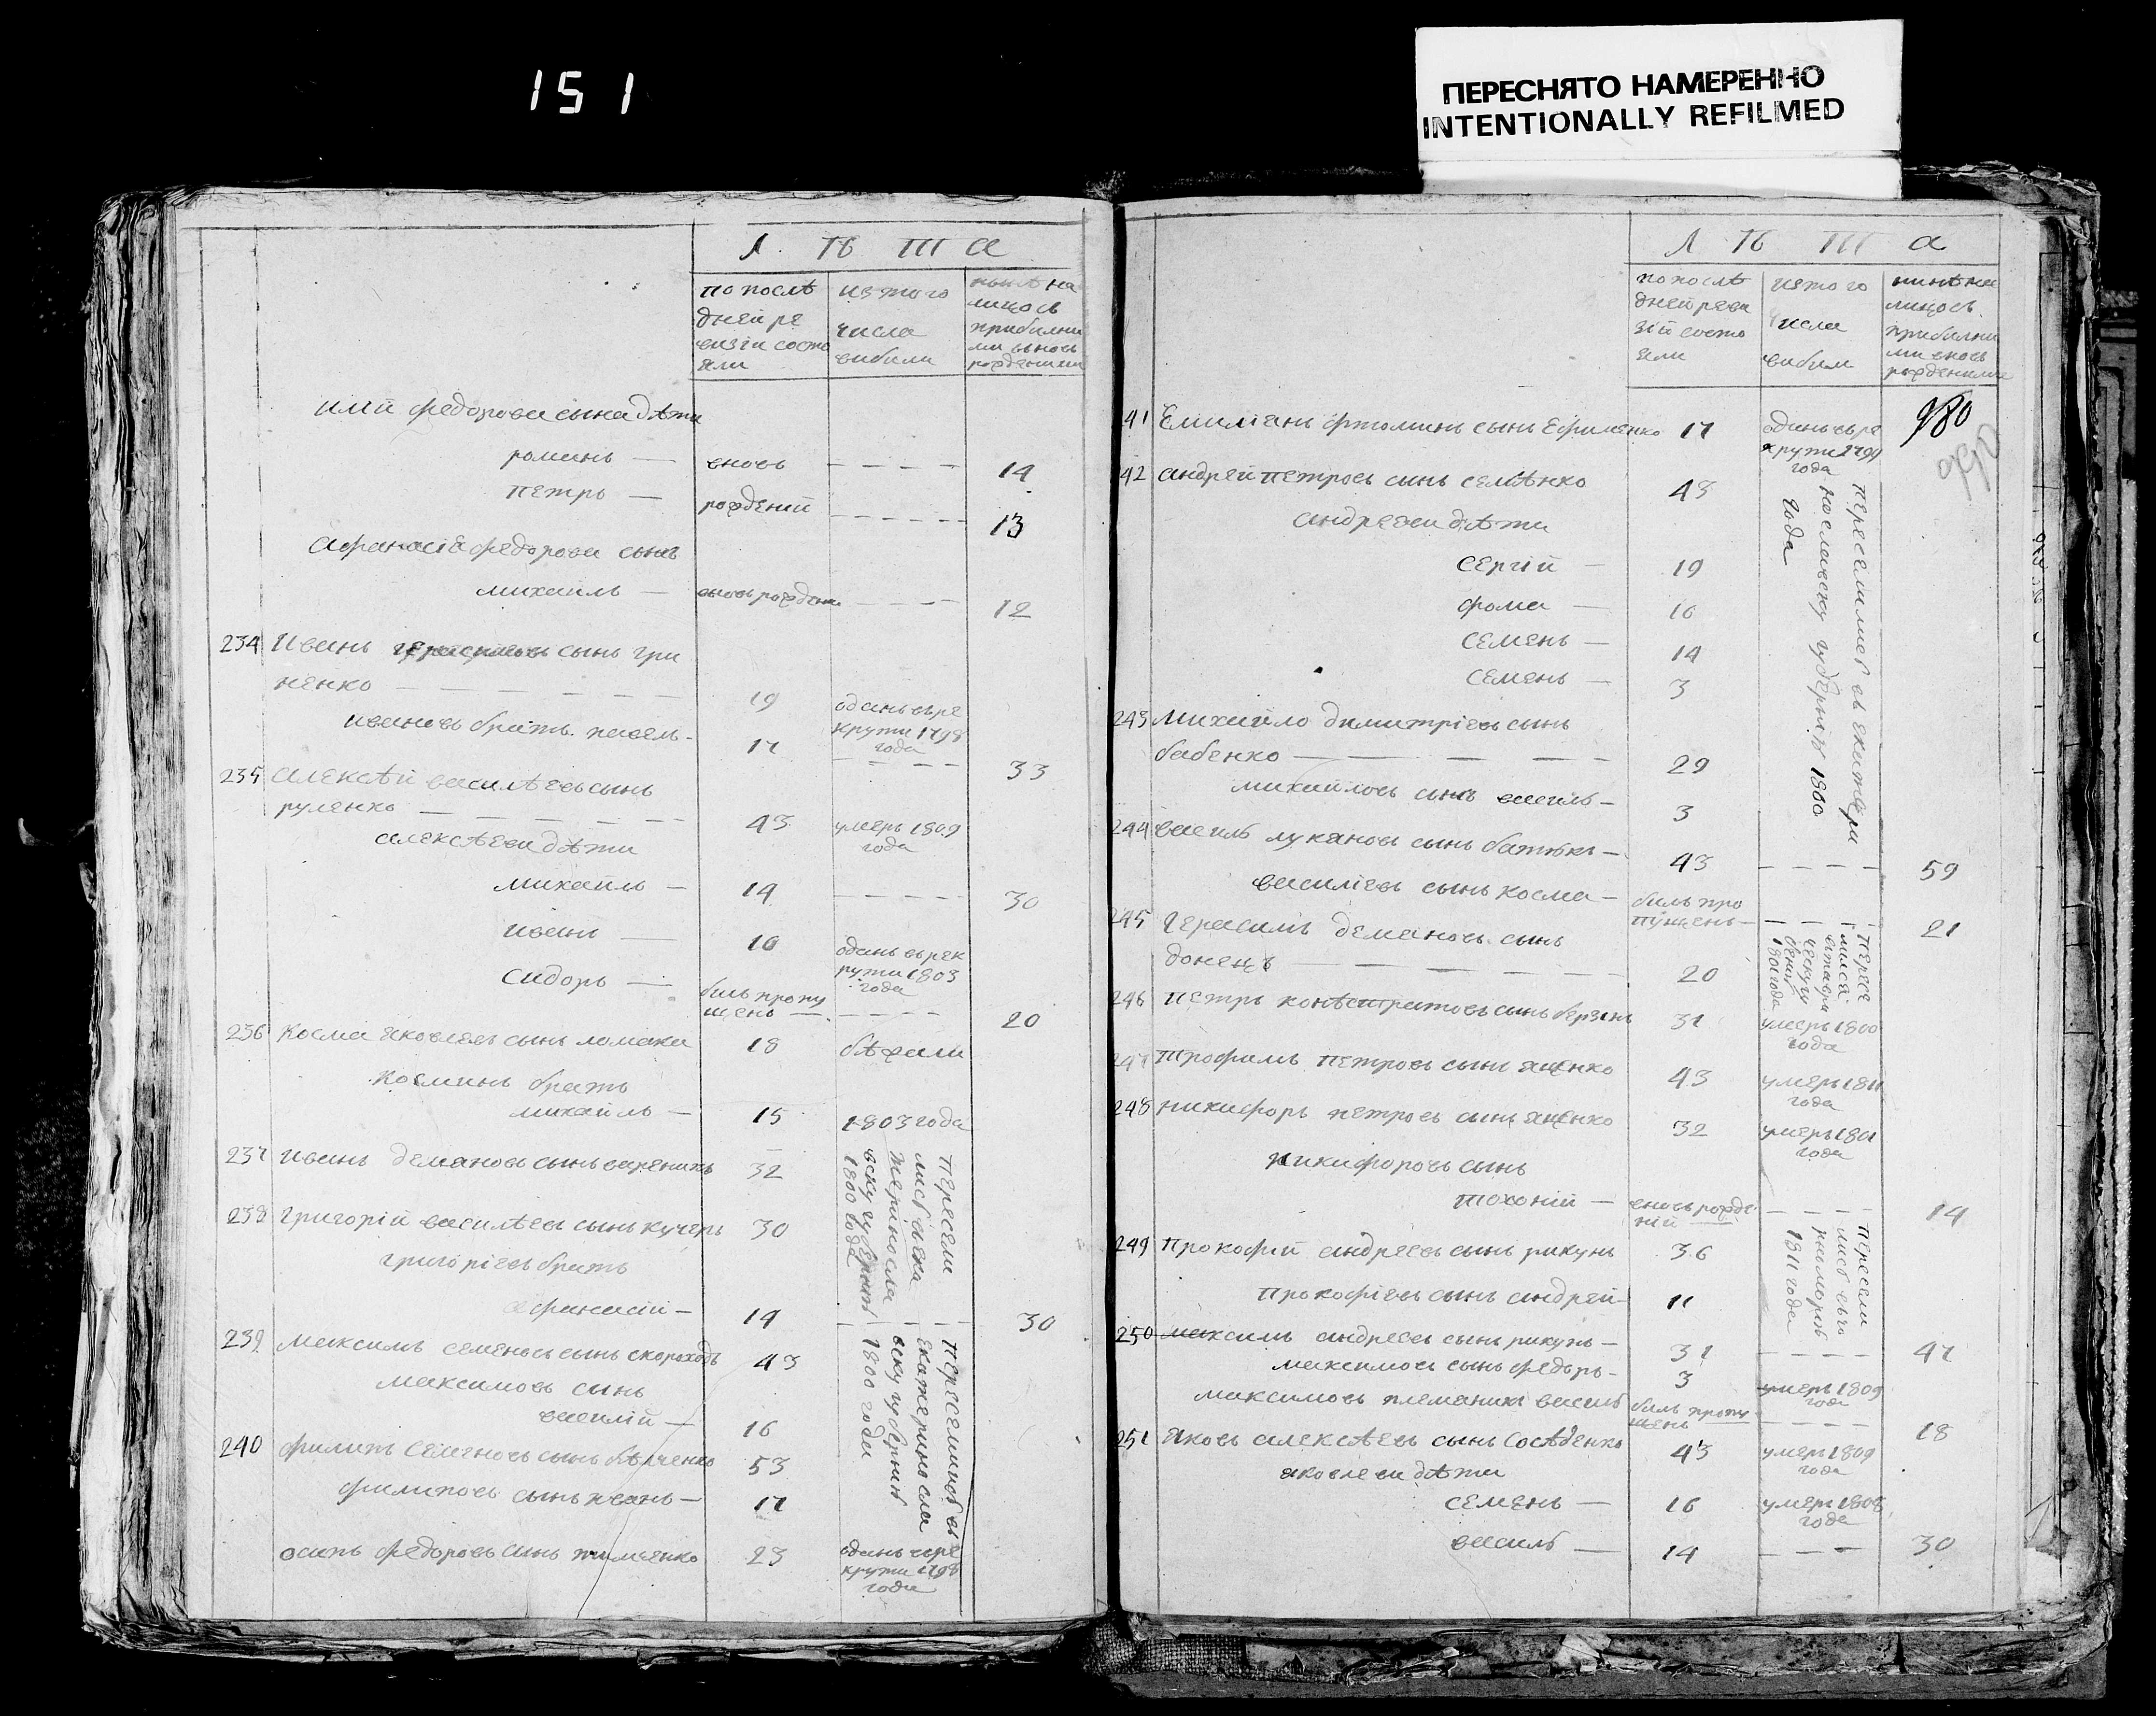 151
ПЕРЕСНЯТО НАМЕРЕННО
INTENTIONALLY REFILMED
Л Ѣ Т а
по послѣ
дней ре
визіи состо
яли
изтого
числа
выбыли
нынѣ на
лицо съ
прибылы
ми вновь
рожденными
федорова сына дѣти
романъ — вновь — — — — 14
петръ — рожденій — — — — 13
афанасія федорова сынъ
михайлъ — вновь рожденъ — — — 12
234 Иванъ сынъ гри
ненко — — — — — — 19 оданъ въ ре
крути 1798
года
ивановъ братъ павелъ - 17 — — — — 33
235 Алексѣй василѣевъ сынъ
руленко — — — — — 43 умеръ 1809
года
алексѣеви дѣти
михайлъ — 14 — — — — 30
иванъ — 10 оданъ в рек
рути 1803
года
сидоръ — билъ пропу
щенъ — — — — — 20
236 Косма яковлевъ сынъ ломака 18 бѣжали
косминъ братъ
михайлъ — 15 1803 года
237 Иванъ демяновъ сынъ вареникъ 32
пересели
лисѣ въ ека
териносла
вску губернію
1800 года
238 григорій василѣевъ сынъ кучеръ 30
григоріевъ братъ
афанасій — 14 30
239 Максимъ семеновъ сынъ скороходъ 43
переселилисѣ въ
екатеринослав
вску губернию
1800 года
максимовъ сынъ
василій — 16
240 филипъ семеновъ сынъ бѣлченко 53
филиповъ сынъ иванъ — 17
осипъ федоровъ синъ 23 оданъ в ре
крути 1798
года
Л Ѣ Т а
по послѣ
дней реви
зій состо
яли
изтого
числа
вибили
нинѣ на
лицо съ
прибылы
ми вновь
рожденными
980
41 Емиліянъ сынъ Ефименко 17 оданъ в ре
крути 179
года
42 андрей петровъ сынъ селѣнко 43
переселилисѣ въ екатери
нославску губернию 1800
года
андрееви дѣти
сергій — 19
фома — 16
семенъ — 14
семенъ — 3
243 Михайло димитріевъ сынъ
бабенко — — — — 29
михайловъ сынъ василь — 3
244 василь лукяновъ сынъ — 43 — — — — 59
василіевъ сынъ косма — билъ про
пущенъ — — — — 21
245 Герасимъ демяновъ сынъ
донецъ — — — — — 20
1801 года
246 петръ сынъ 31 умеръ 1800
года
247 трофимъ петровъ сынъ яценко 43 умеръ 1811
года
248 никифоръ петровъ сынъ яценко 32 умеръ 1801
года
никифоровъ сынъ
тохоній — вновь рожде
ній — — — 14
249 прокофій андреевъ сынъ рикунъ 36
пересели
лисѣ въ
1811 года
прокофіевъ сынъ андрей — 11
250 максимъ андреевъ сынъ рикунъ — 31 — — — — 47
максимовъ сынъ федоръ — 3 умеръ 1809
года
максимовъ племяникъ василь билъ пропу
щенъ — — — — 18
251 яковъ алексѣевъ сынъ Сосѣденко 43 умеръ 1809
года
яковлеви дѣти
семенъ — 16 умеръ 1808
года
василь — 14 — — — 30